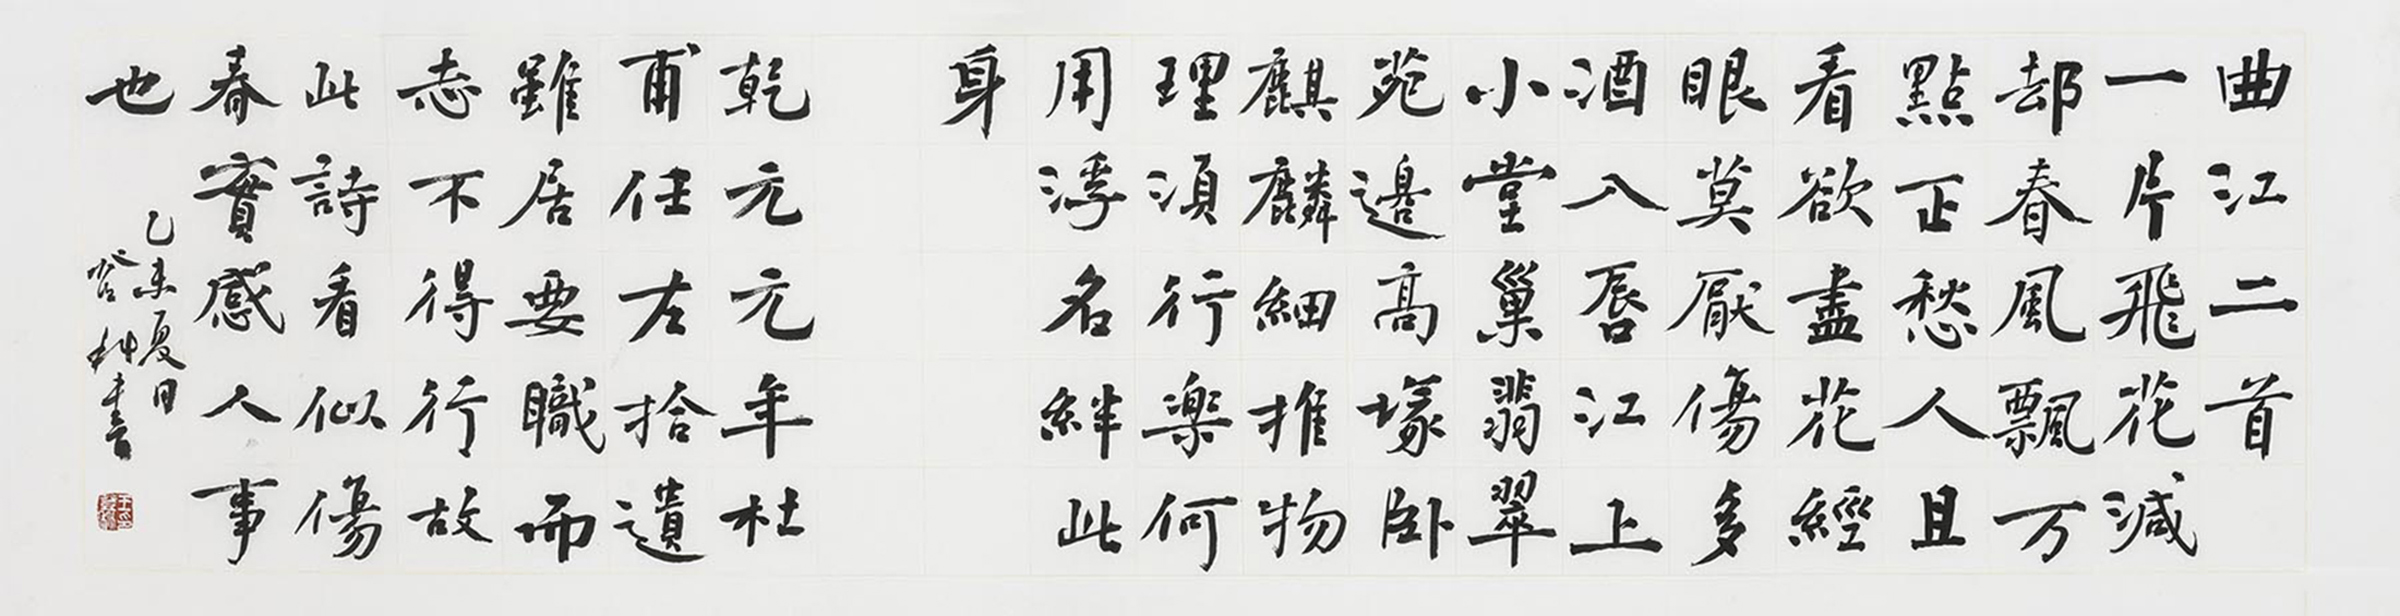 曲江二首
一片飛花減
却春風飄万
點正愁人且
看欲盡花經
眼莫厭傷多
酒入唇江上
小堂巢翡翠
苑邊高塚卧
麒麟細推物
理須行樂何
用浮名絆此
身
乾元元年杜
甫任左拾遺
雖居要職而
志不得行故
此詩看似傷
春實感人事
也
乙未夏日
書